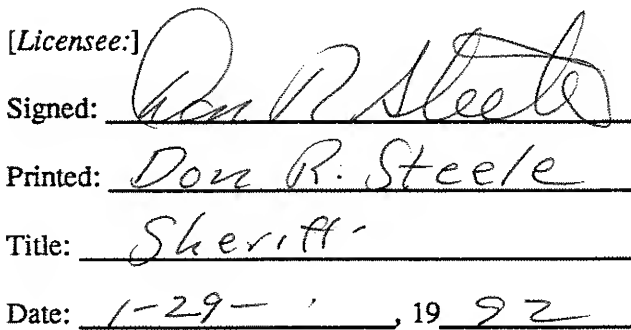 [Licensee:]
Signed: Don R Steele
Printed: Don R. Steele
Title: Sheriff
Date: 1-29- , 19 92